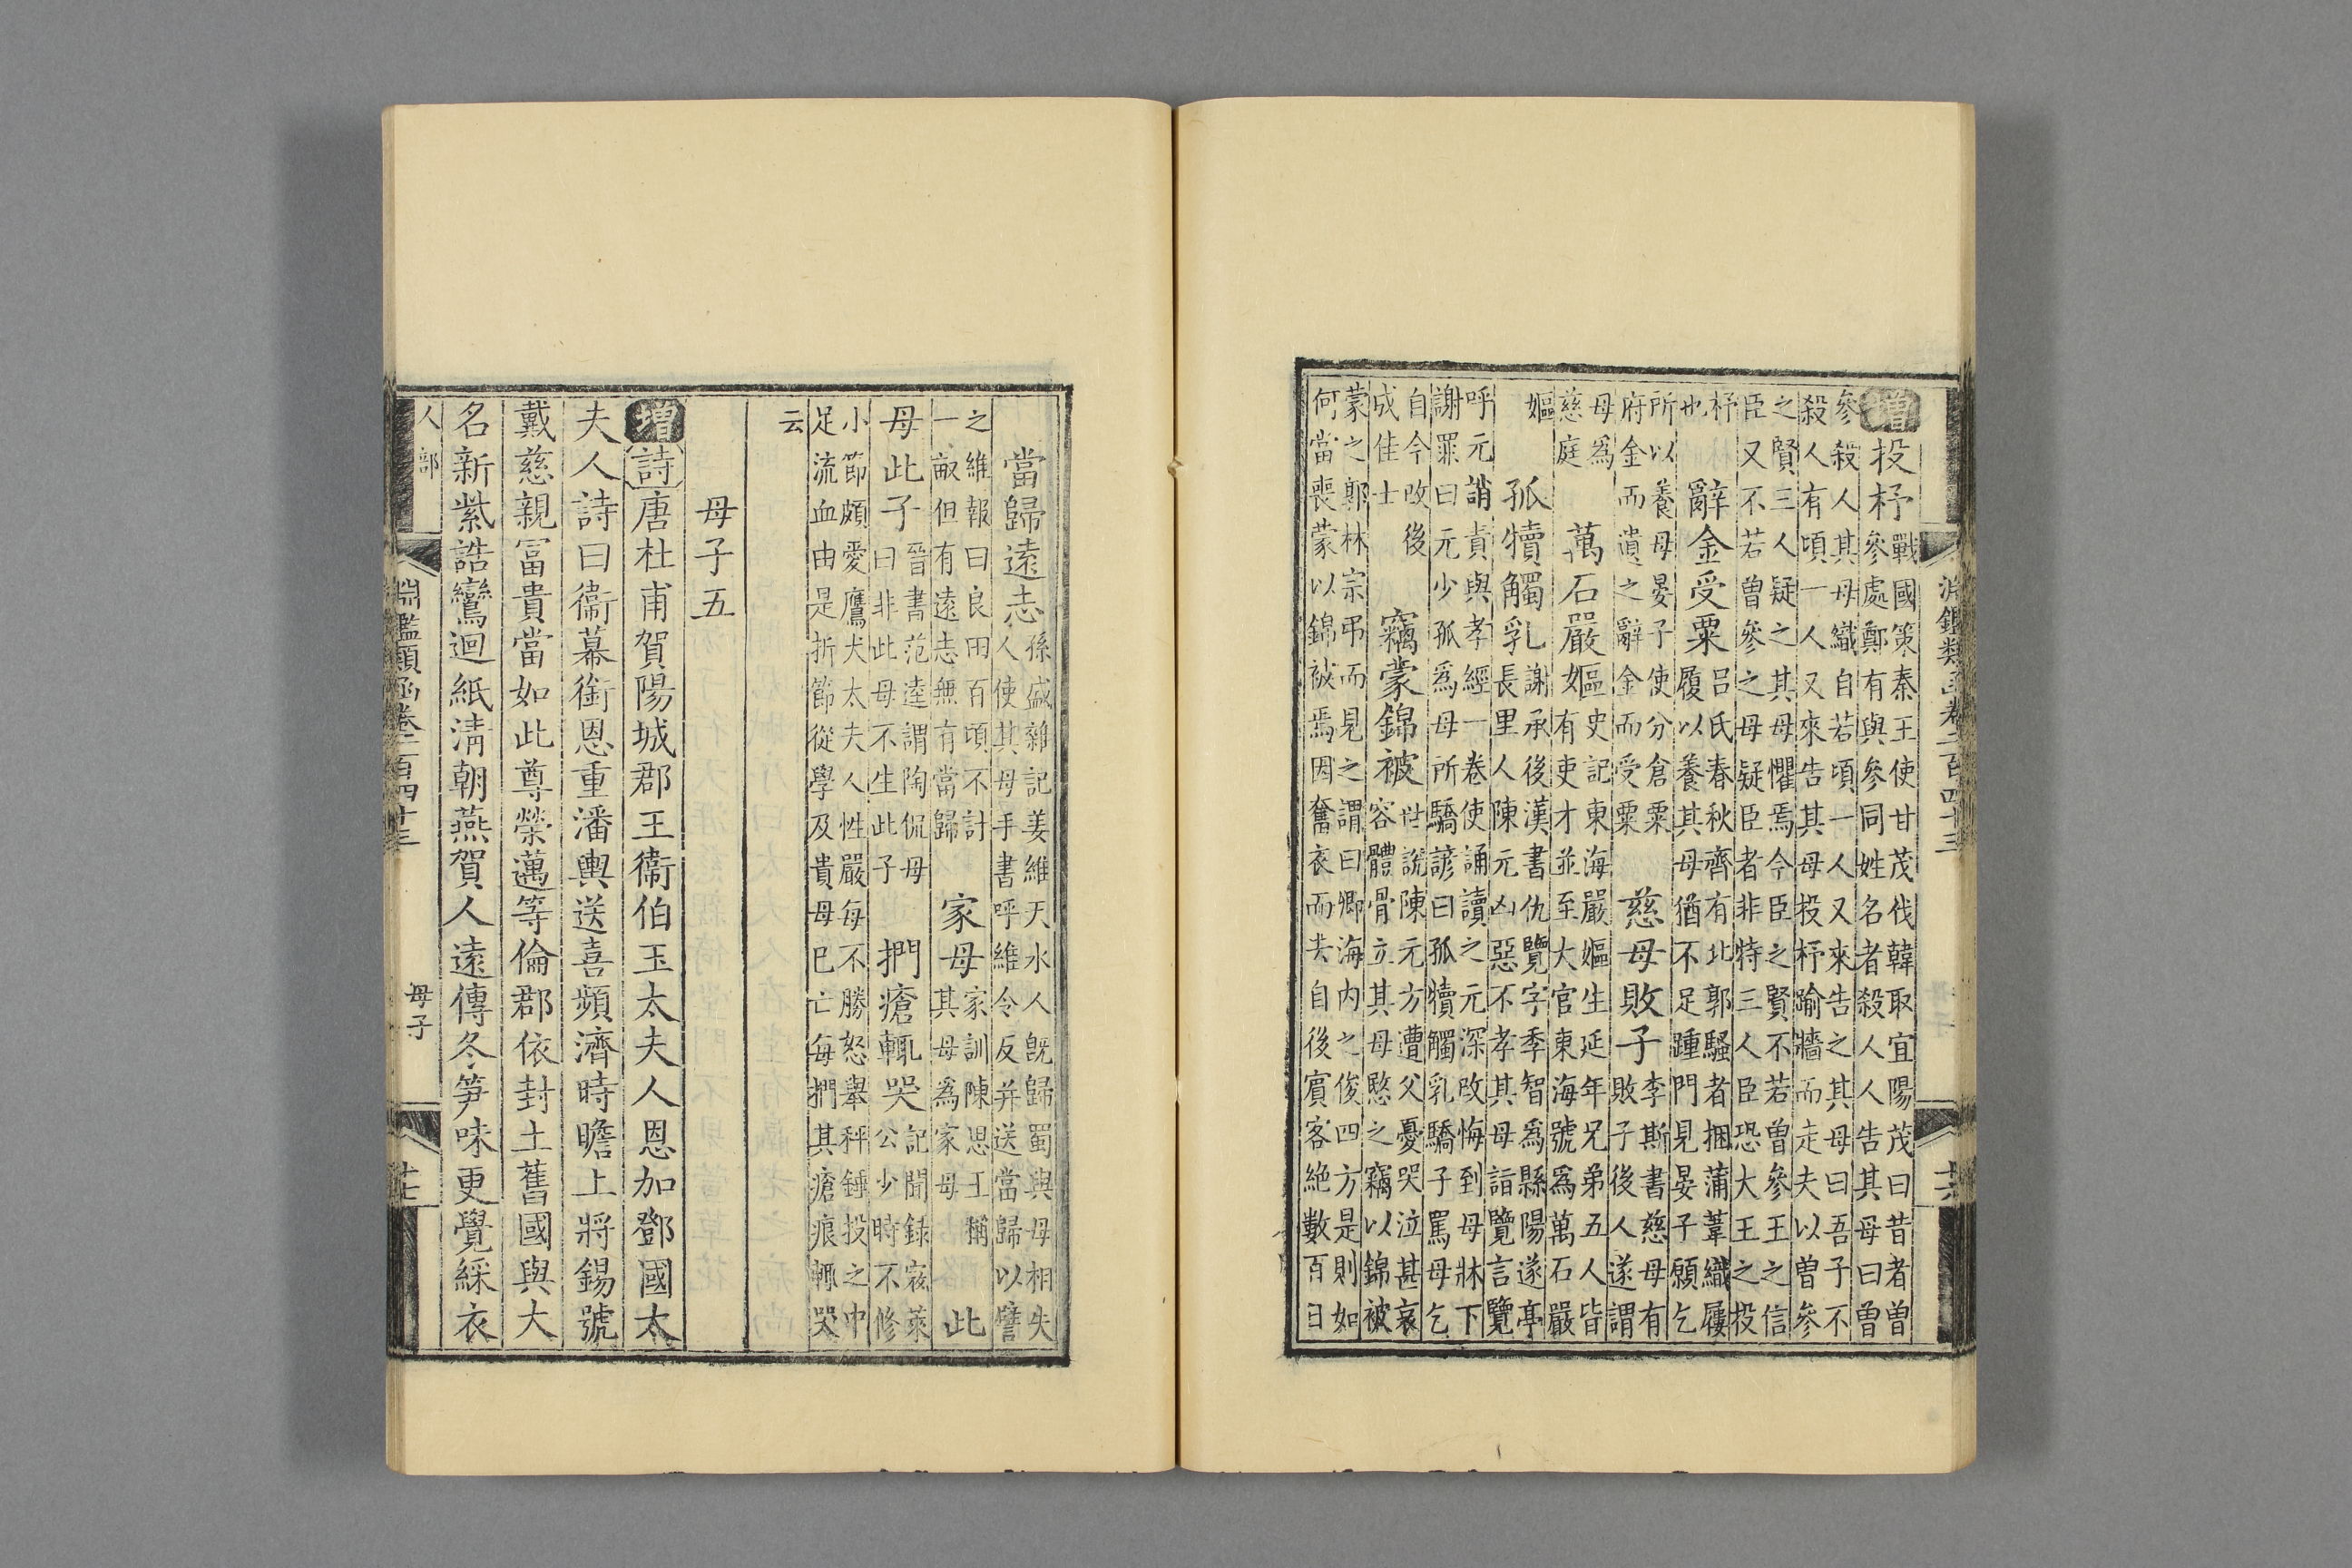 淵鑑類函卷二百四十三
十六
增 投杼
戰國策秦王使甘茂伐韓取宜陽茂曰昔者曾
參處鄭有與參同姓名者殺人人告其母曰曾
參殺人其母織自若頃一人又來告之其母曰吾子不
殺人有頃一人又來告其母投杼踰牆而走夫以曾參
之賢三人疑之其母懼焉今臣之賢不若曾參王之信
臣又不若曾參之母疑臣者非特三人臣恐大王之投
杼
也
辭金受粟
呂氏春秋齊有北郭騷者捆蒲葦織屨
履以養其母猶不足踵門見晏子願乞
所以養母晏子使分倉粟
府金而遺之辭金而受粟
慈母敗子
李斯書慈母有
敗子後人遂謂
母爲
慈庭
萬石嚴嫗
史記東海嚴嫗生延年兄弟五人皆
有吏才並至大官東海號爲萬石嚴
嫗
孤犢觸乳
謝承後漢書仇覽字季智爲縣陽遂亭
長里人陳元凶惡不孝其母詣覽言覽
呼元誚責與孝經一卷使誦讀之元深改悔到母牀下
謝罪曰元少孤爲母所驕諺曰孤犢觸乳驕子罵母乞
自今改後
成佳士
竊蒙錦被
世說陳元方遭父憂哭泣甚哀
容體骨立其母愍之竊以錦被
蒙之郭林宗弔而見之謂曰卿海內之俊四方是則如
何當喪蒙以錦被焉因奮衣而去自後賓客絕數百日
當歸遠志
孫盛雜記姜維天水人旣歸蜀與母相失
人使其母手書呼維令反并送當歸以譬
之維報曰良田百頃不計
一畝但有遠志無有當歸
家母
家訓陳思王稱
其母爲家母
此
母此子
晉書范逵謂陶侃母
曰非此母不生此子
捫瘡輒哭
記聞錄寇萊
公少時不修
小節頗愛鷹犬太夫人性嚴每不勝怒舉秤錘投之中
足流血由是折節從學及貴母已亡每捫其瘡痕輒哭
云
母子五
增 詩 唐杜甫賀陽城郡王衞伯玉太夫人恩加鄧國太
夫人詩曰衞幕銜恩重潘輿送喜頻濟時瞻上將錫號
戴慈親富貴當如此尊榮邁等倫郡依封土舊國與大
名新紫誥鸞迴紙淸朝燕賀人遠傳冬笋味更覺綵衣
人部
淵鑑類函卷二百四十三
母子
十七